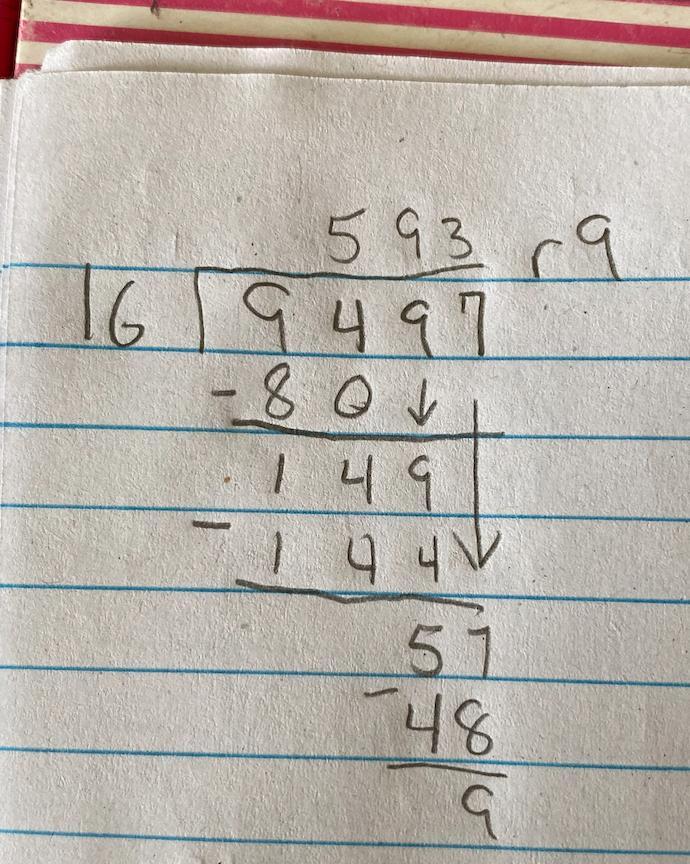 593 r9
16 9497
-80↓
149
-144
57
-48
9